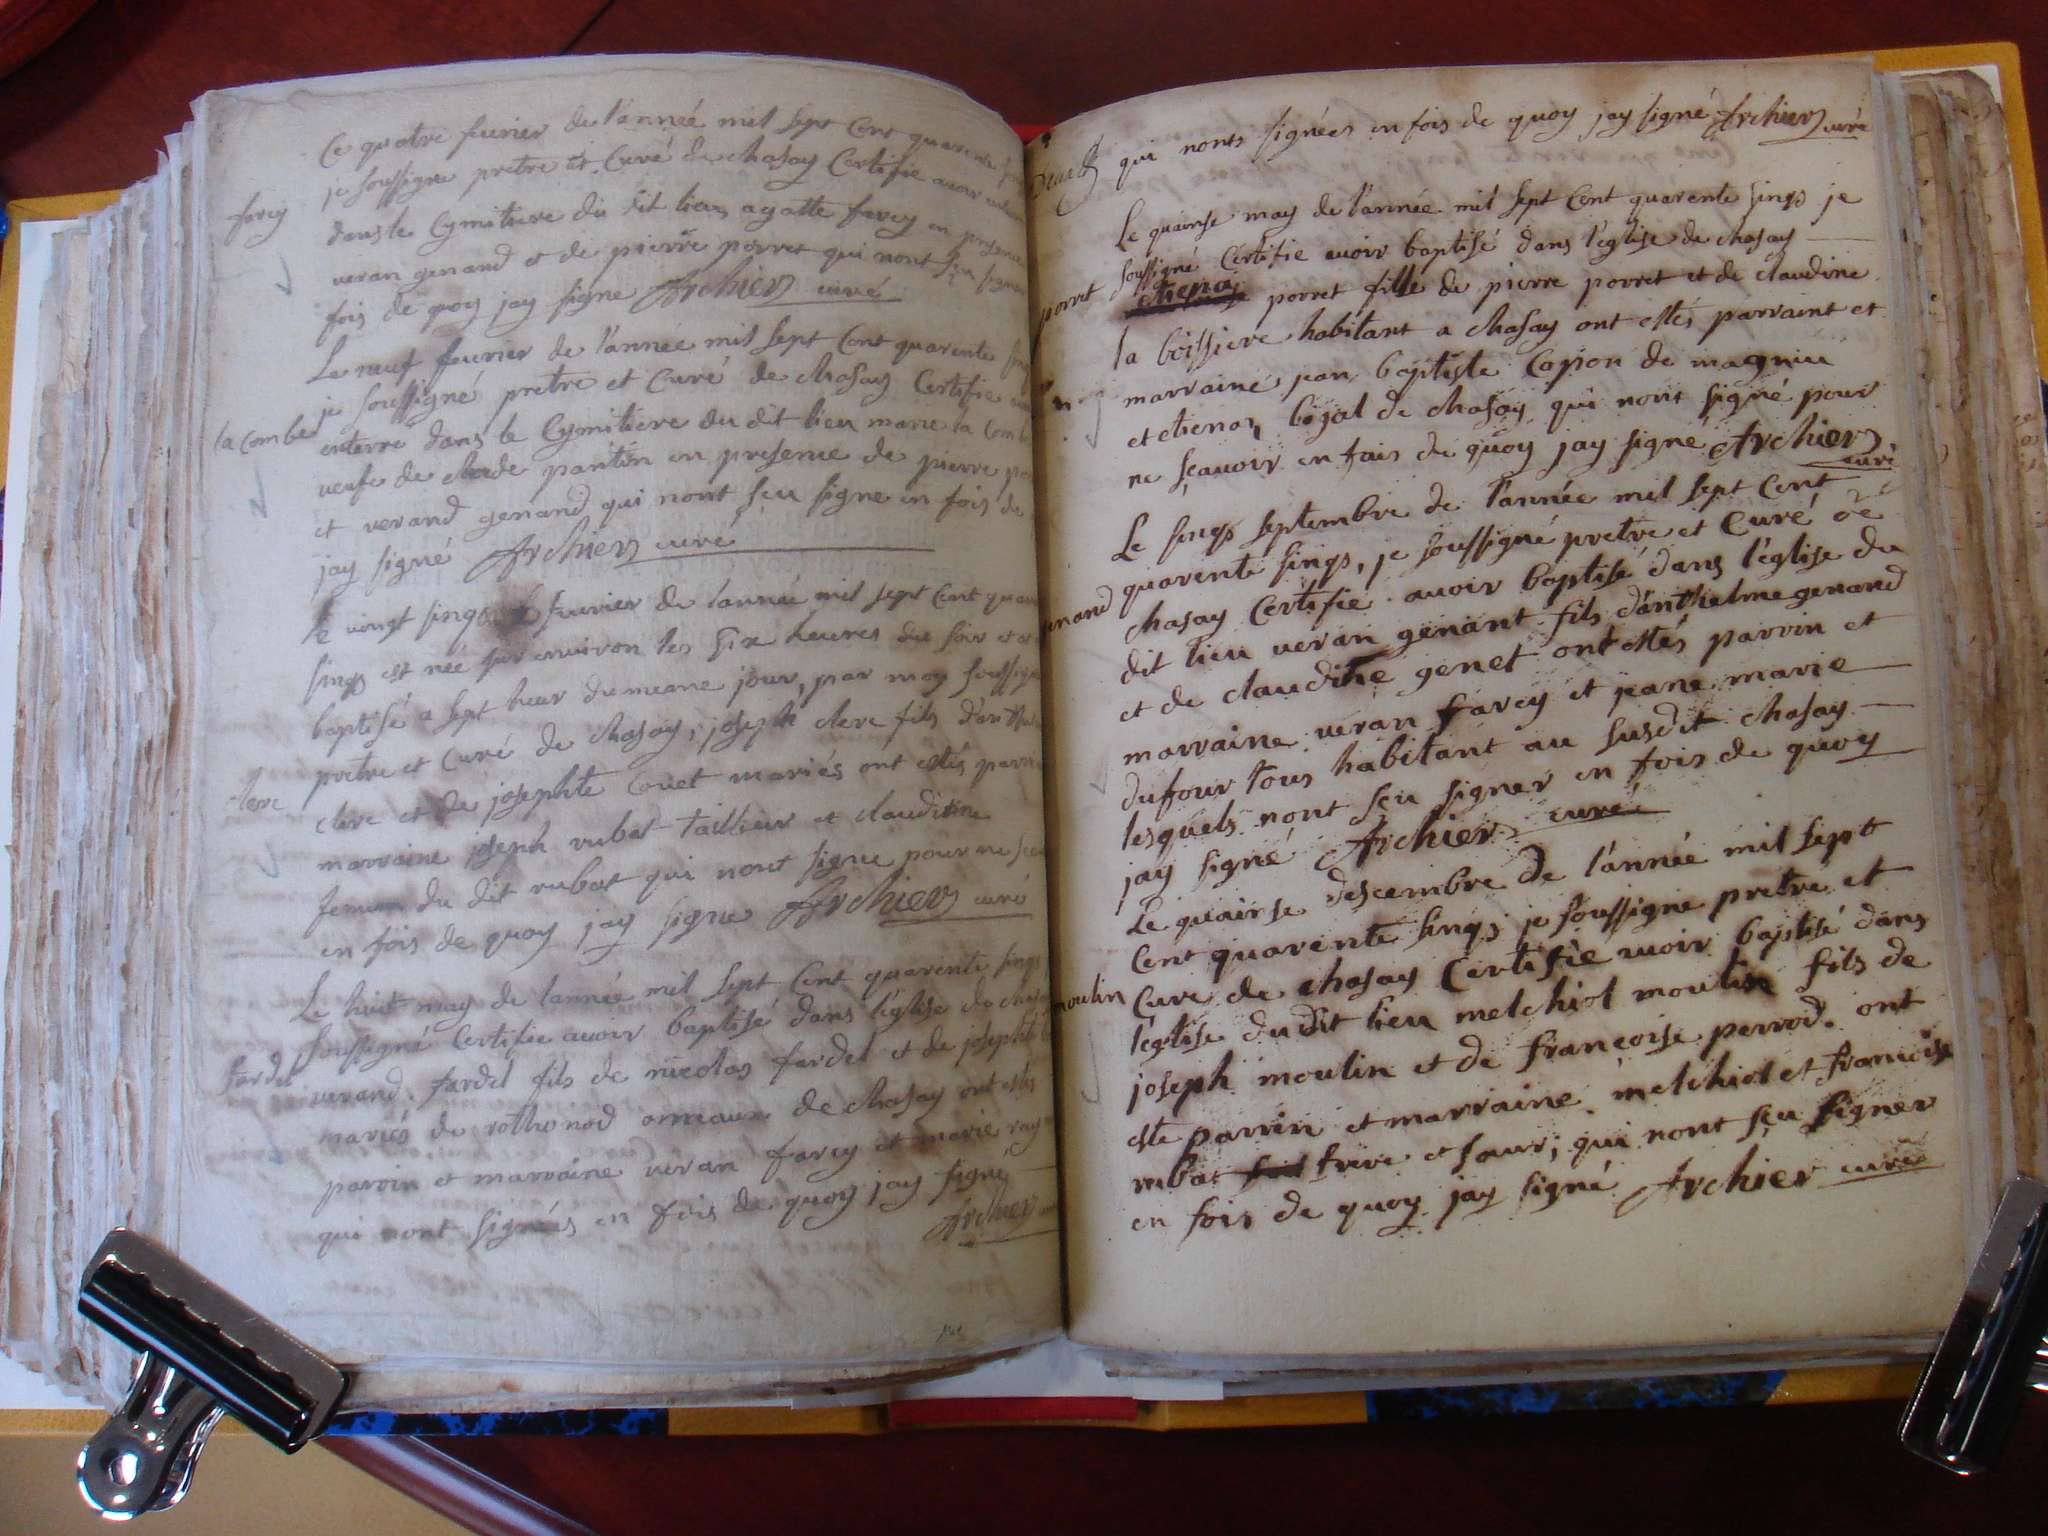 Ce quatre feurier de l'année mil sept Cent quarente
je soussigne pretre et Curé de chasay Certifie auoir
farcy
dans le Cymitiere du dit lieu agatte farcy en presence
veran genand et de pierre porret qui nont sçu signer
fois de quoy jay signe Archier curé
Le neuf feurier de l'année mil sept Cent quarente
je soussigné pretre et Curé de chasay Certifie
la combe
enterre dans le Cymitiere du dit lieu marie la Combe
veufe de claude pantin en presence de pierre
et verand genand qui nont sçu signe en fois de
jay signé Archier curé
le vingt sinqs feurier de l'année mil sept Cent
sinqs est née sur enuiron les six heures du soir et
baptisé a sept heur du meame jour, par moy soussigné
pretre et Curé de chasay, joseph clerc fils
clerc
clerc et de josephte Couet mariés ont estés
marraine joseph rubat tailleur et claudine
femme du dit rubat qui nont signe pour ne
en fois de quoy jay signe Archier curé
Le huit may de l'année mil sept Cent quarente sinqs
soussigné Certifie auoir baptisé dans l'eglise de
fardel
verand fardel fils de nicolas fardel et de josephte
mariés de rothonod de chasay ont estés
parrin et marraine veran farcy et marie
qui nont signés en fois de quoy jay signé
Archier
qui nonts signées en fois de quoy jay signé Archier curé
Le quainse may de l'année mil sept Cent quarente sinqs je
soussigné Certifie auoir baptisé dans l'eglise de chasay
porret
etiena porret fille de pierre porret et de claudine
la boissiere habitant a chasay ont estés parraint et
marraine jean baptiste Capon de magnieu
et etiena bojal de chasay qui nont signé pour
ne sçauoir en fais de quoy jay signé Archier
curé
Le sinqs septembre de l'année mil sept Cent
quarente sinqs, je soussigné pretre et Curé de
chasay Certifie auoir baptisé dans l'eglise du
dit lieu veran genant fils d'anthelme genand
et de claudine genet ont estés parrin et
marraine veran farcy et jeane marie
dufour tous habitant au susdit chasay
lesquels nont sçu signer en fois de quoy
jay signé Archier curé
Le quainse descembre de l'année mil sept
Cent quarente sinqs je soussigne pretre et
moulin
Cure de chasay Certifie auoir baptisé dans
l'eglise du dit lieu melchiol moulin fils de
joseph moulin et de francoise perrod. ont
este parrin et marraine melchiol et francoise
rubat frere et sœur; qui nont sçu signer
en fois de quoy jay signé Archier curé